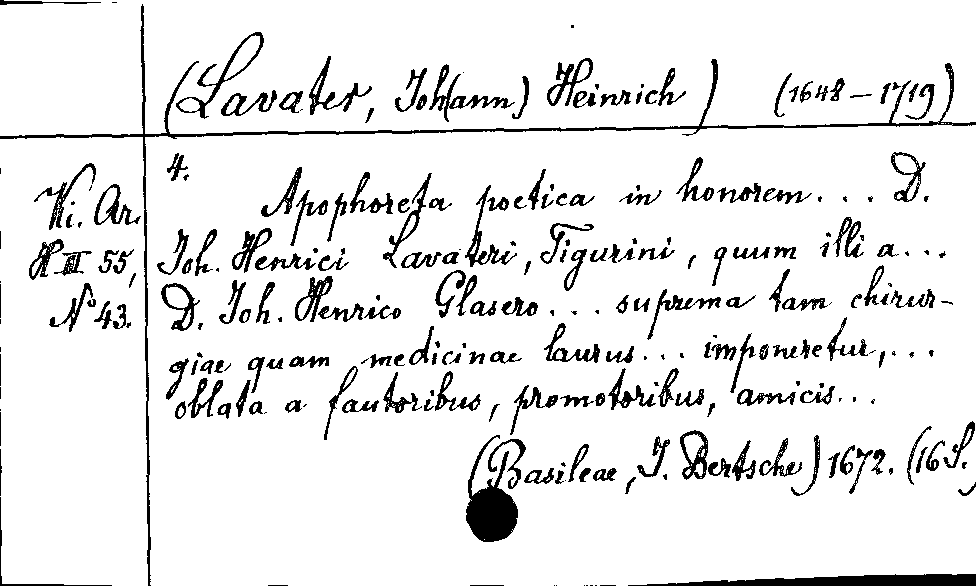 (Lavater, Joh(ann) Heinrich) (1648–1719)
4.
Ki. Ar.
H III 55,
No 43.
Apophoreta poetica in honorem... D.
Joh. Henrici Lavateri, Tigurini, quum illi a...
D. Joh. Henrico Glasero... suprema tam chirur-
giae quam medicinae laurus... imponeretur,...
oblata a fautoribus, promotoribus, amicis...
(Basileae, J. Bertsche) 1672. (16 S.